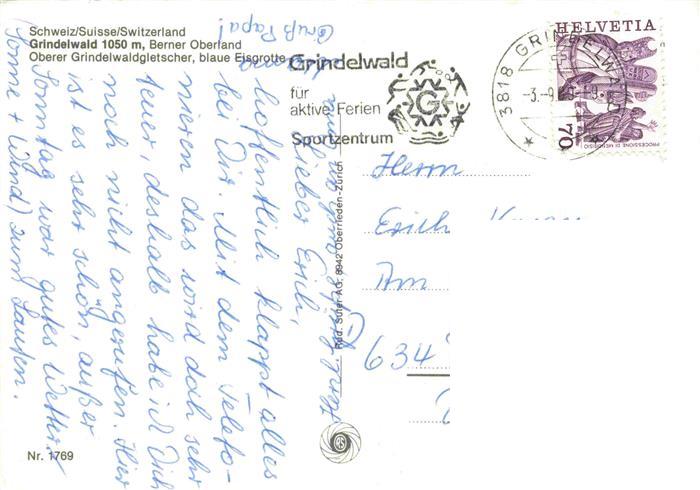 Schweiz/Suisse/Switzerland
Grindelwald 1050 m, Berner Oberland
Oberer Grindelwaldgletscher, blaue Eisgrotte
Grindelwald
für
aktive Ferien
Sportzentrum
G
3818 GRINDELWALD
HELVETIA
70
PROCESSIONE DI MENDRISIO
Lieber Erich,
hoffentlich klappt alles
bei Dir. Mit dem Telefo-
nieren das wird doch sehr
teuer, deshalb habe ich Dich
noch nicht angerufen. Hier
ist es sehr schön, außer
Sonntag war gutes Wetter
(Sonne + Wind) zum Laufen.
Gruß Papa!
Herrn
Erich
Am
634
Red. Suter AG, 8942 Oberrieden-Zürich
Nr. 1769